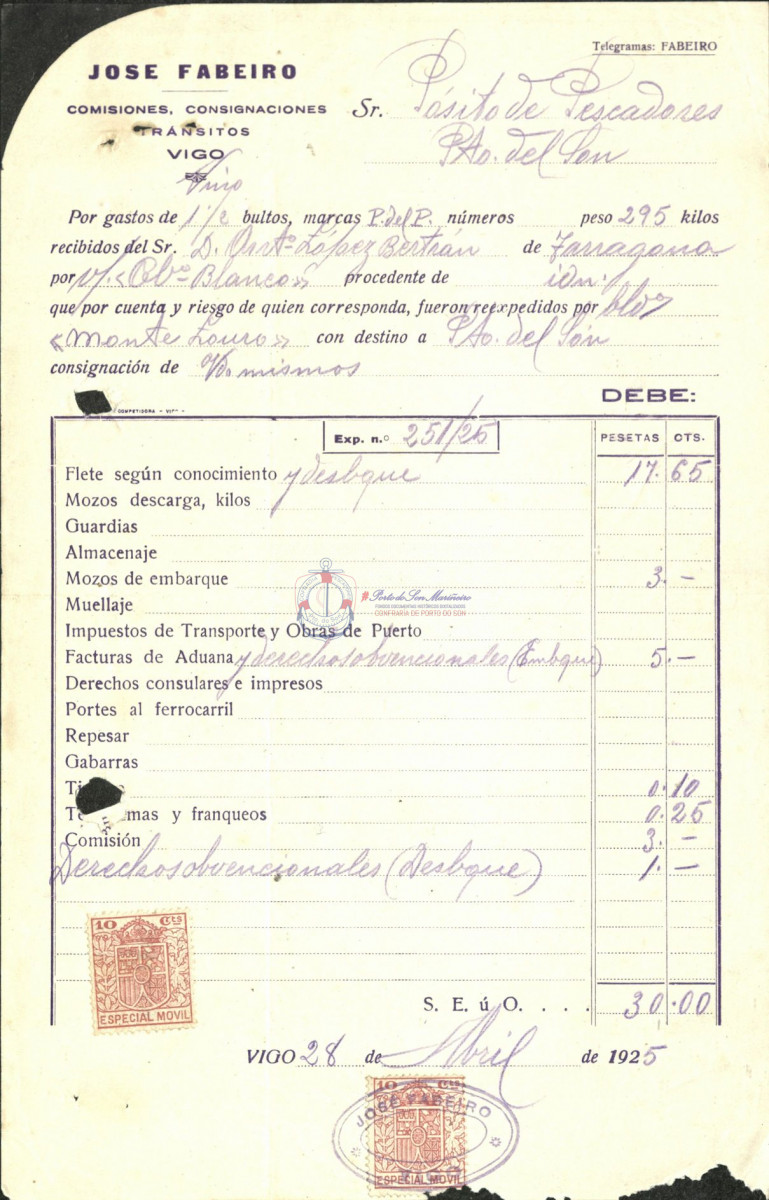 Telegramas: FABEIRO
JOSE FABEIRO
COMISIONES, CONSIGNACIONES
TRÁNSITOS
VIGO
Sr. Pósito de Pescadores
Pto. del Son
Vino
Por gastos de 1 1/2 bultos, marcas P. del P. números peso 295 kilos
recibidos del Sr. D. López Bertrán de Tarragona
por v/. «Cbo Blanco» procedente de idn.
que por cuenta y riesgo de quien corresponda, fueron reexpedidos por
«Monte Louro» con destino a Pto. del Són
consignación de Vds. mismos
DEBE:
COMPETIDORA - VIGO -
Exp. n.º 251/25 PESETAS CTS.
Flete según conocimiento y desbque 17. 65
Mozos descarga, kilos
Guardias
Almacenaje
Mozos de embarque 3. -
Muellaje
#Porto do Son Mariñeiro
FONDOS DOCUMENTAIS HISTÓRICOS DIXITALIZADOS
CONFRARÍA DE PORTO DO SON
Impuestos de Transporte y Obras de Puerto
Facturas de Aduana y derechos obvencionales (Embque) 5. -
Derechos consulares e impresos
Portes al ferrocarril
Repesar
Gabarras
0. 10
mas y franqueos 0. 25
Comisión 3. -
Derechos obvencionales (Desbque) 1. -
10 Cts
ESPECIAL MOVIL
S. E. ú O. . . . . 30.00
VIGO 28 de Abril de 1925
10 Cts
JOSÉ FABEIRO
ESPECIAL MOVIL